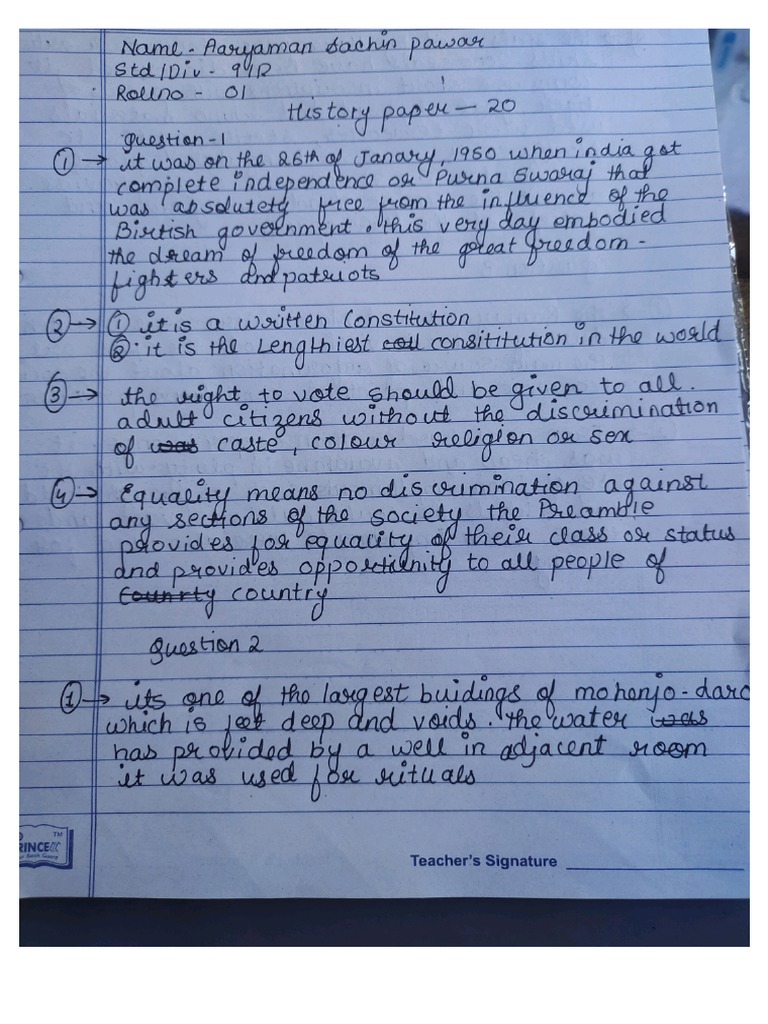 Name - Aaryaman Sachin pawar
Std/Div - 9/12
Rollno - 01
History paper - 20
Question-1
① → it was on the 26th of Janary, 1950 when india got
complete independence or Purna Swaraj that
was absolutety free from the influence of the
Birtish government. this very day embodied
the dream of freedom of the great freedom-
fighters and patriots
② → ① it is a written Constitution
②. it is the Lengthiest consititution in the world
③ → the right to vote should be given to all.
adult citizens without the discrimination
of caste, colour religion or sex
④ → Equality means no discrimination against
any sections of the society the Preamble
provides for equality of their class or status
and provides opportunity to all people of
country
Question 2
① → its one of the largest buidings of mohenjo-daro
which is deep and voids. the water
has provided by a well in adjacent room
it was used for rituals
TM
RINCE
Teacher's Signature